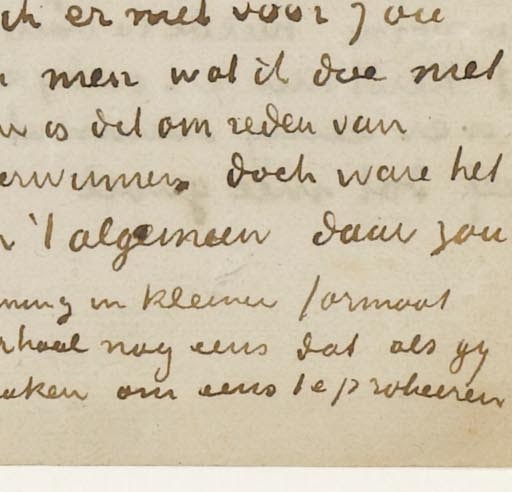 ch er met voor zou
men wat ik doe met
is dit om reden van
erwinnen doch ware het
't algemeen daar zou
ning in kleiner formaat
rhaal nog eens dat als gy
aken om eens te probeeren